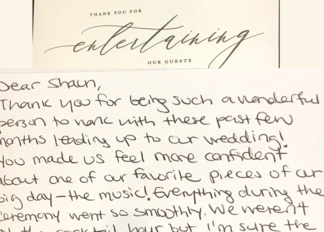 THANK YOU FOR
entertaining
OUR GUESTS
Dear Shaun,
Thank you for being such a wonderful
person to work with these past few
months leading up to our wedding!
You made us feel more confident
about one of our favorite pieces of our
big day - the music! Everything during the
ceremony went so smoothly. We weren't
at the cocktail hour but I'm sure the